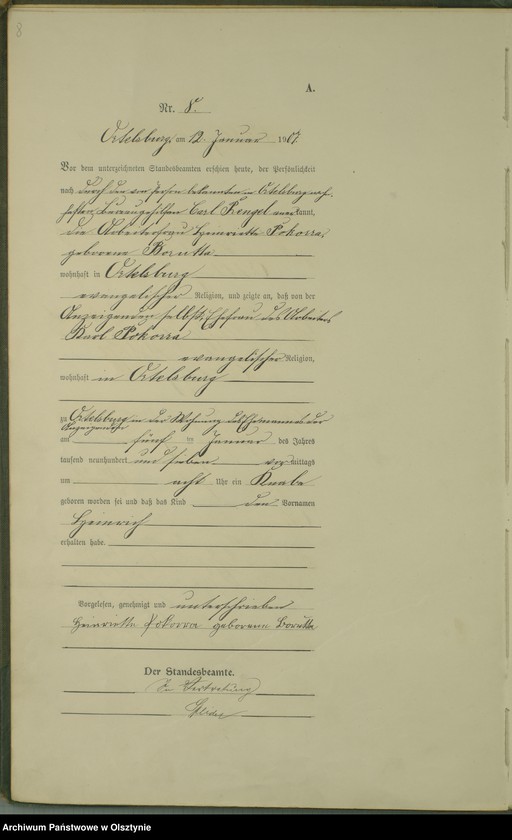 8
A.
Nr. 8.
Ortelsburg, am 12. Januar 1907.
Vor dem unterzeichneten Standesbeamten erschien heute, der Persönlichkeit
nach durch den von Person bekannten in Ortelsburg wohn-
haften Bureaugehilfen Carl Rengel anerkannt,
die Arbeiterfrau Henriette Pokorra,
geborene Borutta
wohnhaft in Ortelsburg
evangelischer Religion, und zeigte an, daß von der
Anzeigenden selbst, Ehefrau des Arbeiters
Karl Pokorra
evangelischer Religion,
wohnhaft in Ortelsburg
zu Ortelsburg in der Wohnung des Ehemannes der
Anzeigenden
am fünf ten Januar des Jahres
tausend neunhundert und sieben vor mittags
um acht Uhr ein Knabe
geboren worden sei und daß das Kind den Vornamen
Heinrich
erhalten habe.
Vorgelesen, genehmigt und unterschrieben
Heinriette Pokorra geborenn Borutta
Der Standesbeamte.
In Vertretung
Archiwum Państwowe w Olsztynie